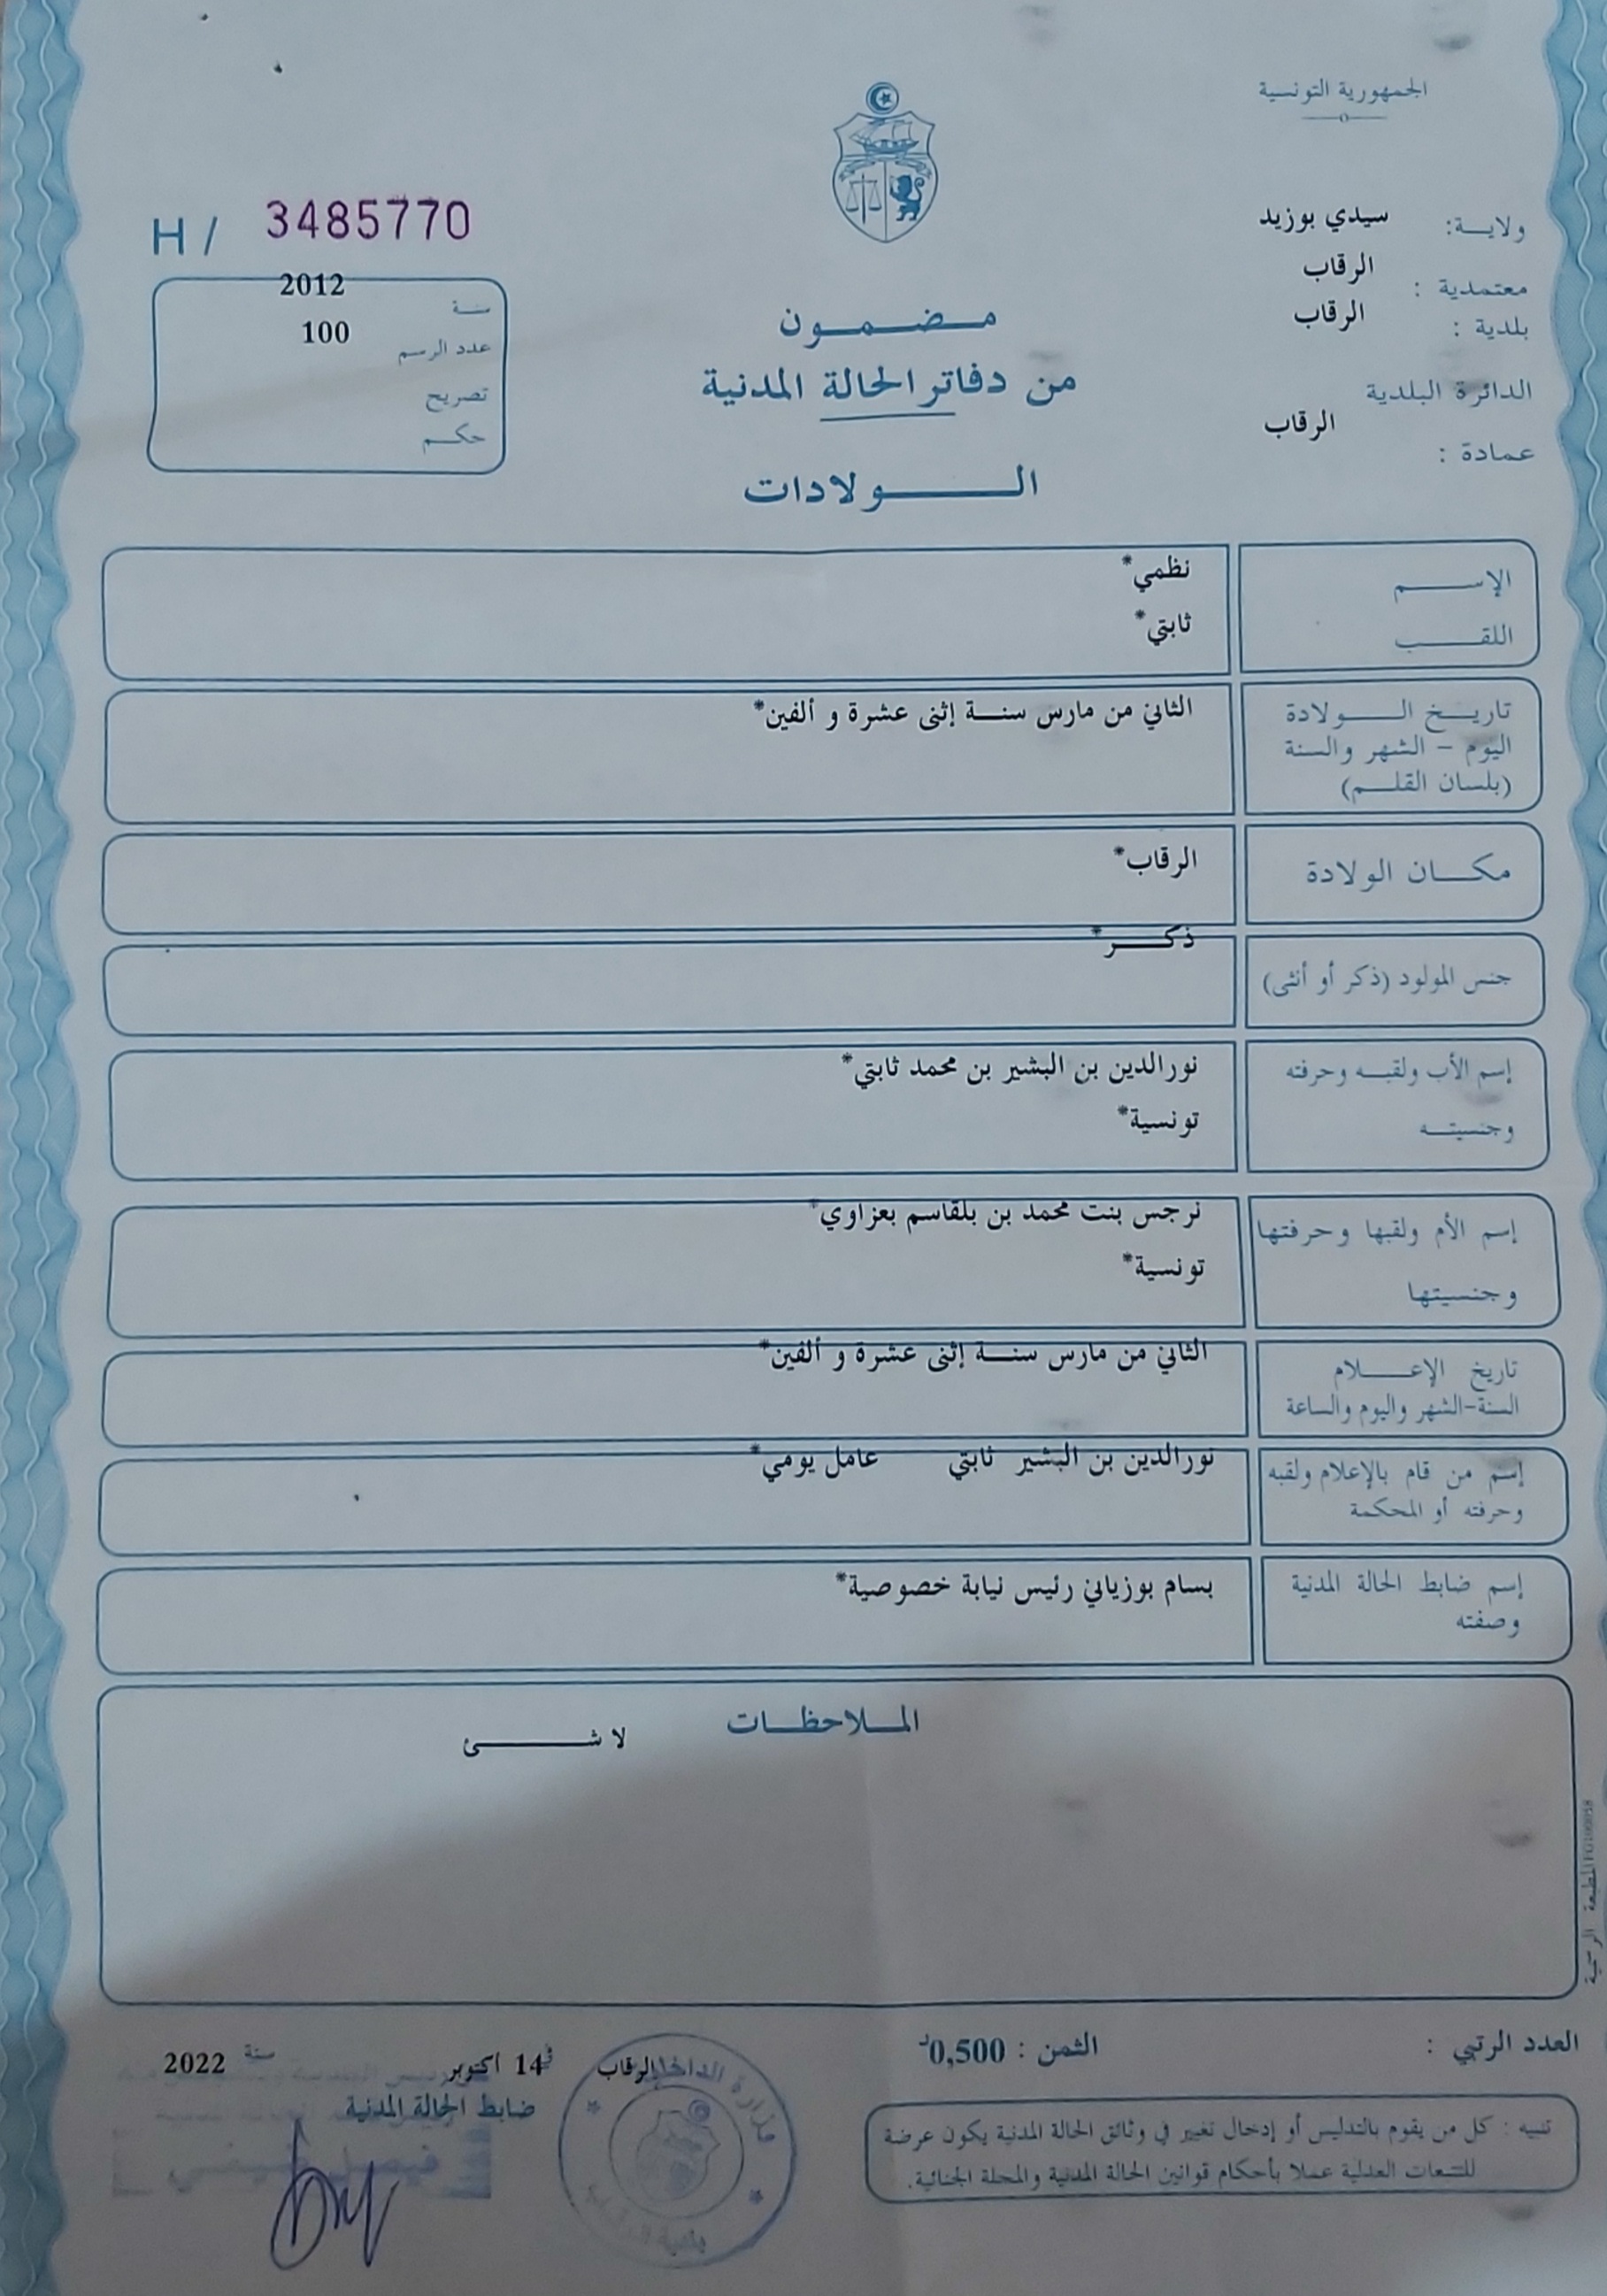 الجمهورية التونسية
ولاية: سيدي بوزيد
معتمدية : الرقاب
بلدية : الرقاب
الدائرة البلدية
عمادة : الرقاب
H / 3485770
سنة 2012
عدد الرسم 100
تصريح
حكم
مضمون
من دفاتر الحالة المدنية
الولادات
الإسم نظمي*
اللقب ثابتي*
تاريخ الولادة الثاني من مارس سنة إثنى عشرة و ألفين*
اليوم - الشهر والسنة
(بلسان القلم)
مكان الولادة الرقاب*
جنس المولود (ذكر أو أنثى) ذكر*
إسم الأب ولقبه وحرفته نورالدين بن البشير بن محمد ثابتي*
وجنسيته تونسية*
إسم الأم ولقبها وحرفتها نرجس بنت محمد بن بلقاسم بعزاوي*
وجنسيتها تونسية*
تاريخ الإعلام الثاني من مارس سنة إثنى عشرة و ألفين*
السنة-الشهر واليوم والساعة
إسم من قام بالإعلام ولقبه نورالدين بن البشير ثابتي عامل يومي*
وحرفته أو المحكمة
إسم ضابط الحالة المدنية بسام بوزياني رئيس نيابة خصوصية*
وصفته
الملاحظات
لا شئ
المطبعة الرسمية
العدد الرتبي :
الثمن : 0,500د
الرقاب في 14 اكتوبر سنة 2022
ضابط الحالة المدنية
وزارة الداخلية
بلدية
تنبيه : كل من يقوم بالتدليس أو إدخال تغيير في وثائق الحالة المدنية يكون عرضة
للتتبعات العدلية عملا بأحكام قوانين الحالة المدنية والمجلة الجنائية.